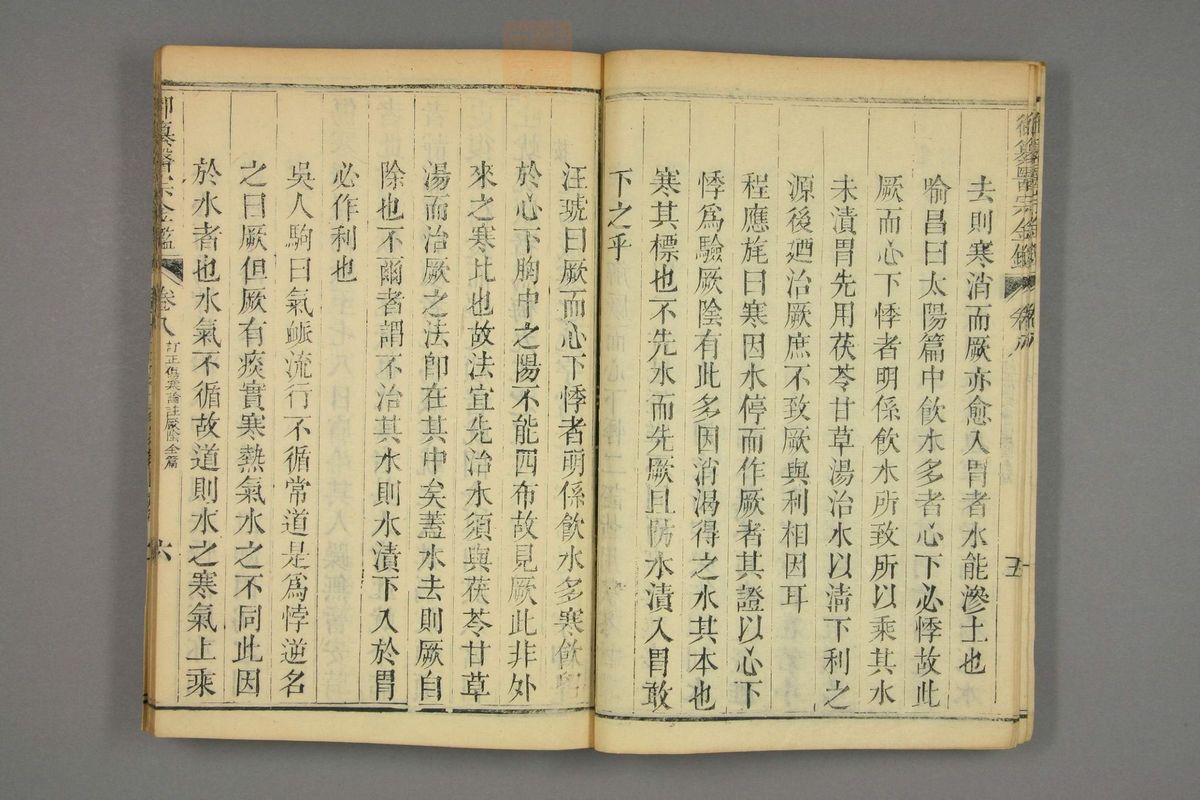 御纂醫宗金鑑
去則寒消而厥亦愈入胃者水能滲土也
喻昌曰太陽篇中飲水多者心下必悸故此
厥而心下悸者明係飲水所致所以乘其水
未漬胃先用茯苓甘草湯治水以清下利之
源後廼治厥庶不致厥與利相因耳
程應旄曰寒因水停而作厥者其證以心下
悸爲驗厥陰有此多因消渴得之水其本也
寒其標也不先水而先厥且防水漬入胃敢
下之乎
五
汪琥曰厥而心下悸者明係飲水多寒飲與
於心下胸中之陽不能四布故見厥此非外
來之寒比也故法宜先治水須與茯苓甘草
湯而治厥之法卽在其中矣蓋水去則厥自
除也不爾者謂不治其水則水漬下入於胃
必作利也
吳人駒曰氣脈流行不循常道是爲悖逆名
之曰厥但厥有痰實寒熱氣水之不同此因
於水者也水氣不循故道則水之寒氣上乘
御纂醫宗金鑑
卷八
訂正傷寒論註厥陰全篇
六